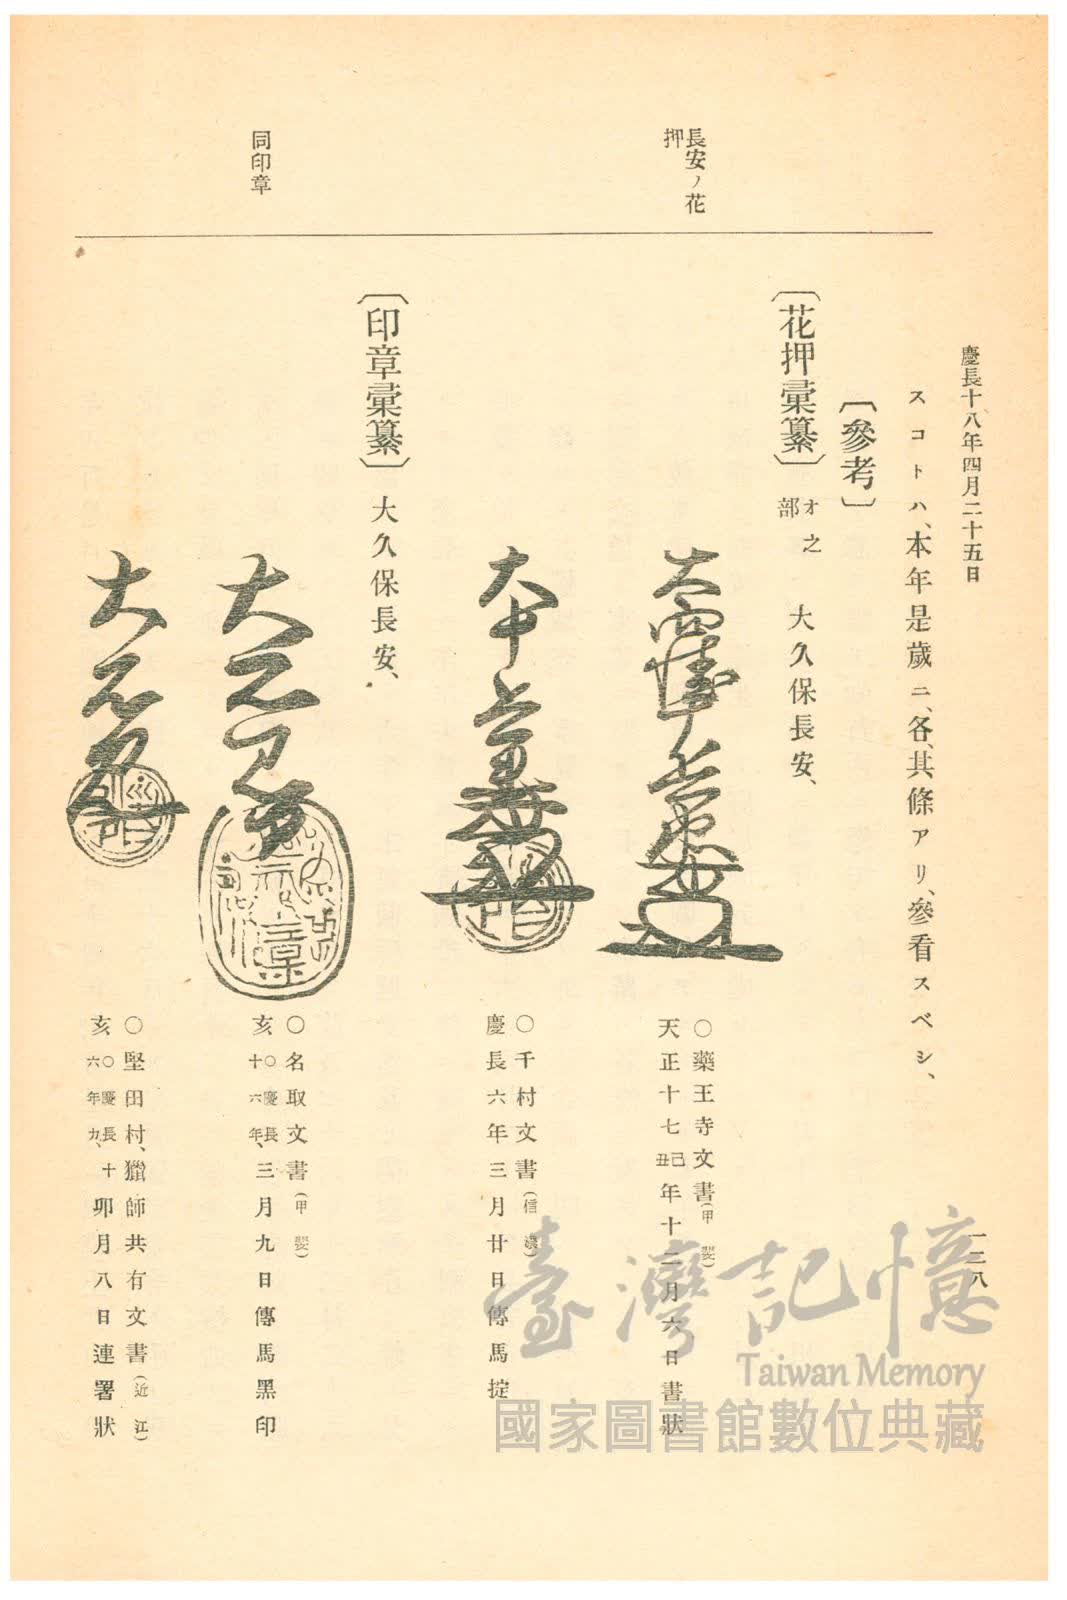 慶長十八年四月二十五日
一二八
スコトハ、本年是歲ニ、各、其條アリ、參看スベシ、
〔參考〕
長安ノ花押
〔花押彙纂〕オ之部 大久保長安、
○藥王寺文書(甲斐)
天正十七己丑年十二月六日書狀
○千村文書(信濃)
慶長六年三月廿日傳馬掟
同印章
〔印章彙纂〕大久保長安、
○名取文書(甲斐)
亥、○慶長十六年、三月九日傳馬黑印
○堅田村、獵師共有文書(近江)
亥、○慶長十六年カ、卯月八日連署狀
臺灣記憶
Taiwan Memory
國家圖書館數位典藏